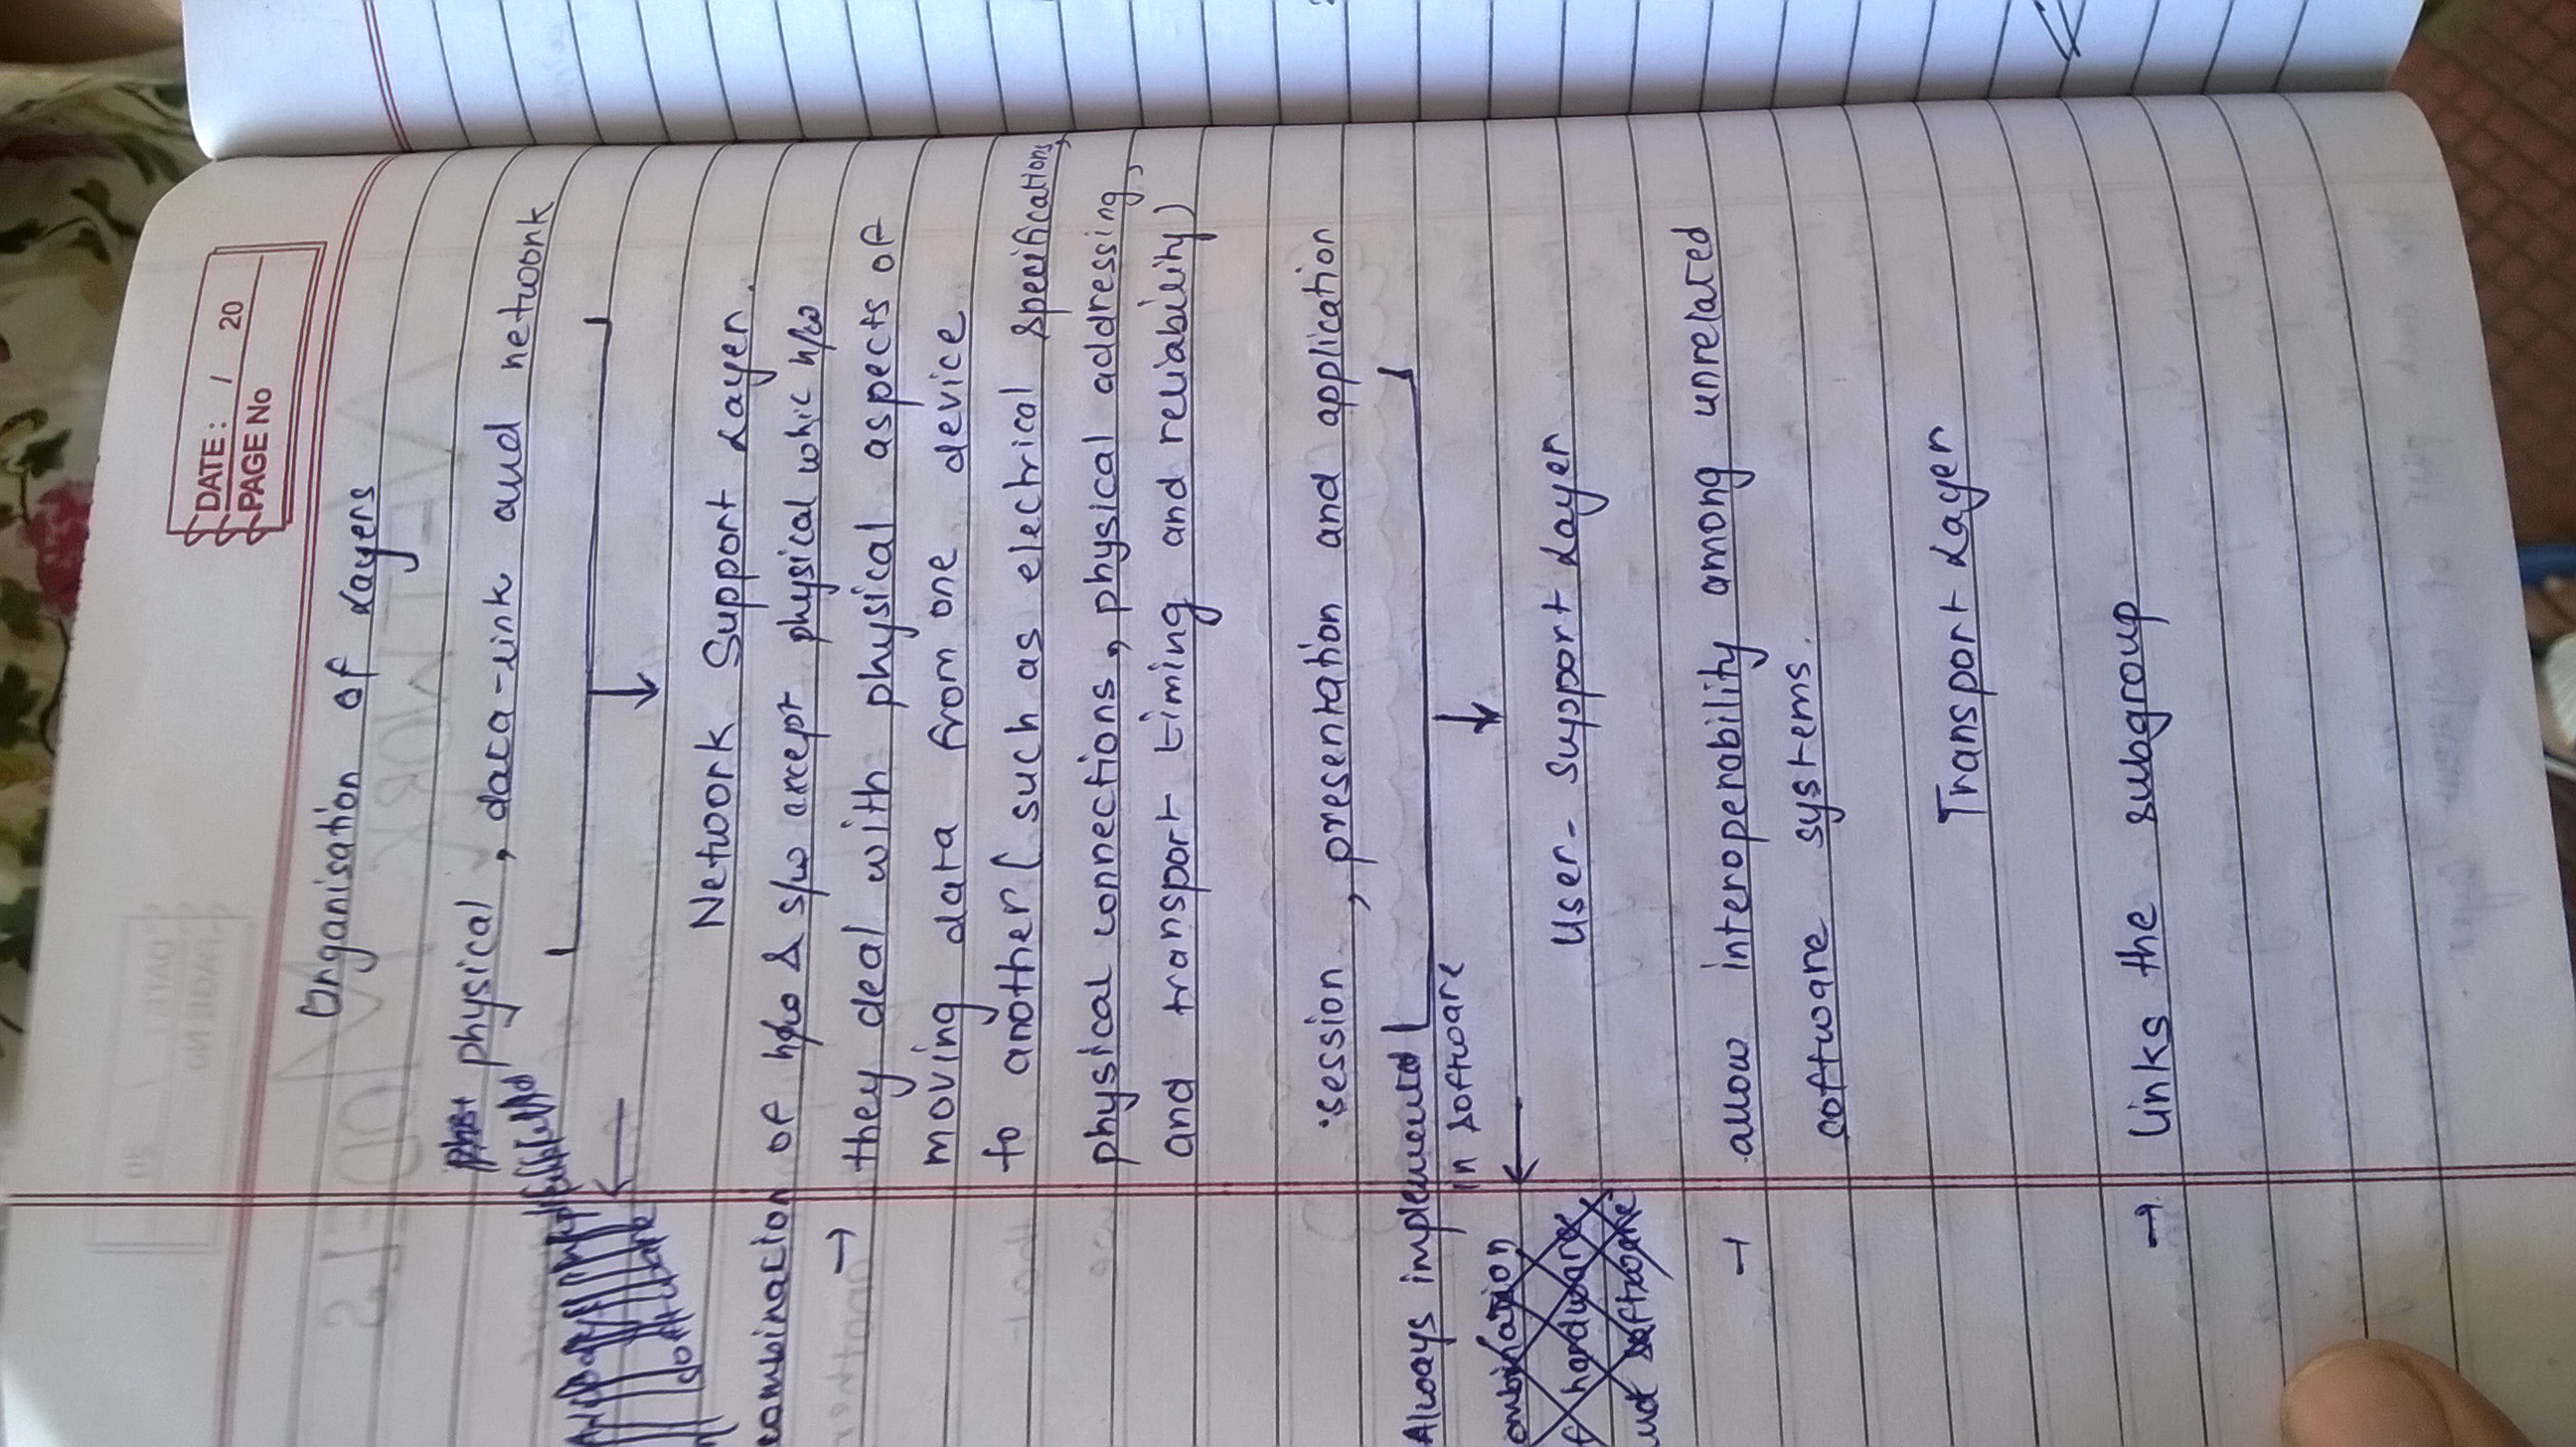 DATE : / 20
PAGE No
Organisation of Layers
physical , data-link and network
Network Support Layer.
combination of h/w & s/w except physical whic h/w
→ they deal with physical aspects of
moving data from one device
to another ( such as electrical specifications,
physical connections, physical addressing,
and transport timing and reliability)
session , presentation and application
Always implemented
in software
ombination
f hardware
software
User- Support Layer
→ allow interoperability among unrelated
software systems.
Transport Layer
→ links the subgroup